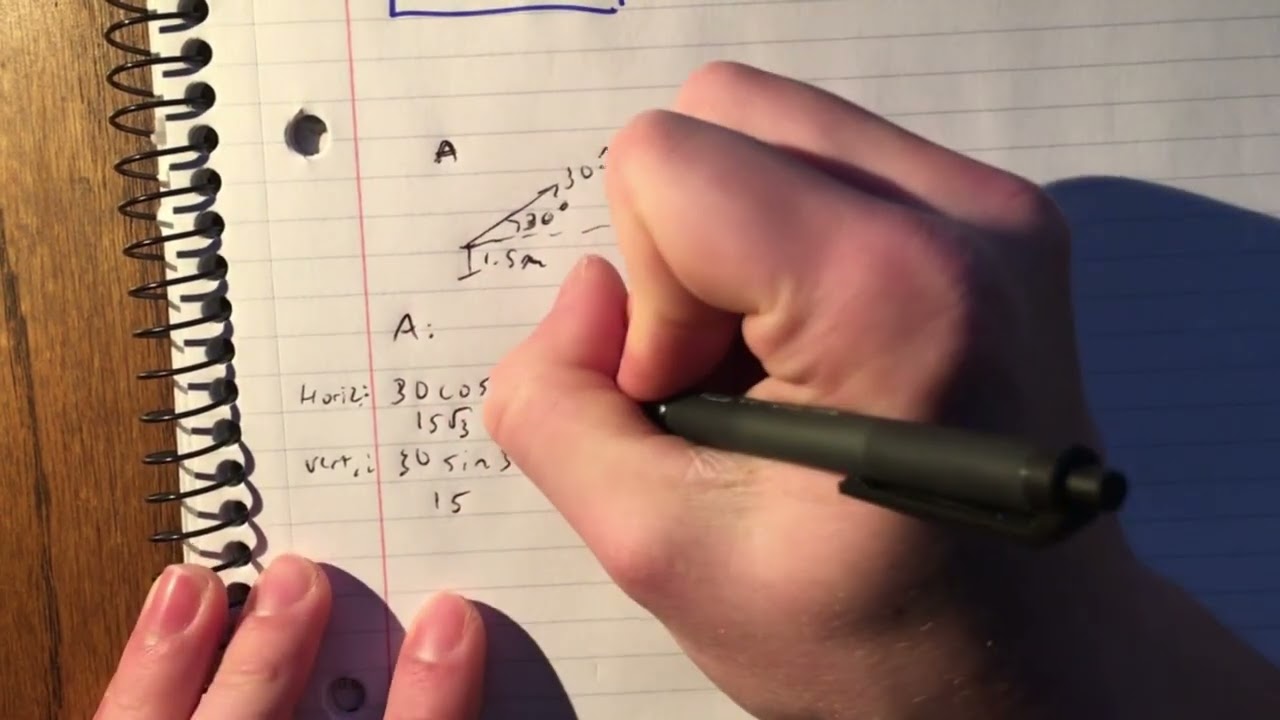 A
30
30°
1.5m
A:
Horiz: 30 cos
15√3
vert.: 30 sin 3
15